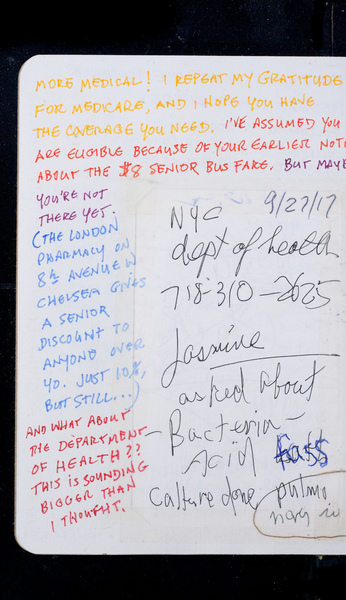 MORE MEDICAL! I REPEAT MY GRATITUDE
FOR MEDICARE, AND I HOPE YOU HAVE
THE COVERAGE YOU NEED. I'VE ASSUMED YOU
ARE ELIGIBLE BECAUSE OF YOUR EARLIER NOTI
ABOUT THE $8 SENIOR BUS FARE. BUT MAYBE
YOU'RE NOT
THERE YET.
(THE LONDON
PHARMACY ON
8th AVENUE IN
CHELSEA GIVES
A SENIOR
DISCOUNT TO
ANYONE OVER
40. JUST 10%,
BUT STILL...)
AND WHAT ABOUT
THE DEPARTMENT
OF HEALTH??
THIS IS SOUNDING
BIGGER THAN
I THOUGHT.
9/27/17
NYC
dept of health
718-310-2625
Jasmine
asked about
- Bacteria -
Acid
Culture done pulmo
nary